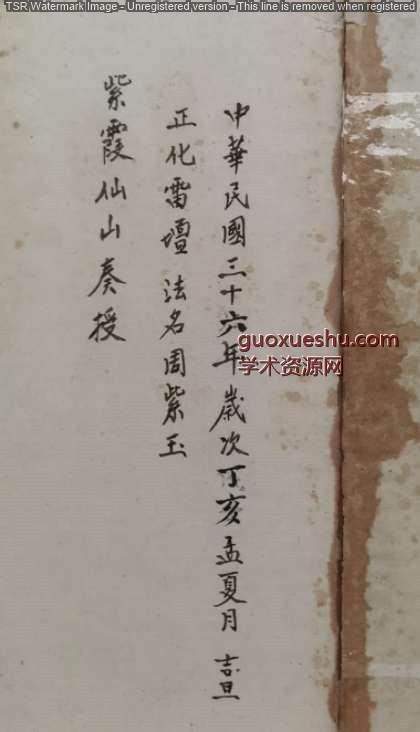 TSR Watermark Image - Unregistered version - This line is removed when registered
中華民國三十六年歲次丁亥孟夏月 吉旦
正化雷壇 法名周紫玉
紫霞仙山奏授
guoxueshu.com
学术资源网